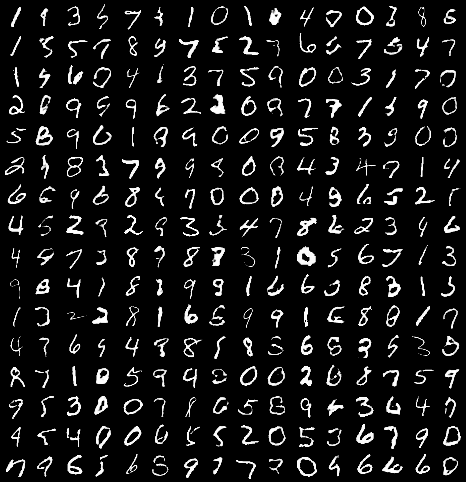 1 9 3 5 7 1 0 1 0 4 0 0 3 8 6
1 8 5 7 8 9 7 5 2 3 6 7 5 4 7
1 9 6 0 4 1 3 7 5 9 0 0 3 1 7 0
2 6 9 5 9 6 2 2 0 8 7 7 1 3 9 0
5 8 9 0 1 8 9 0 0 9 5 8 3 9 0 0
2 1 8 3 7 9 9 8 0 8 4 3 4 7 1 4
6 6 9 6 8 9 7 0 0 0 4 9 6 5 2 1
4 5 2 9 2 9 3 3 4 7 8 6 2 3 9 6
4 9 7 3 8 7 8 7 3 1 0 5 6 7 1 3
9 8 4 1 8 1 9 9 1 6 6 8 3 1 3
1 3 2 2 8 1 6 5 9 9 1 6 8 8 1 7
4 7 6 9 4 8 8 1 8 5 6 8 3 5 3 5
8 7 1 0 5 9 9 0 0 2 0 8 7 5 9
9 5 3 0 0 7 8 0 5 8 9 3 6 4 7
9 5 4 0 0 6 5 5 2 0 5 3 6 7 9 0
7 9 6 5 6 8 9 1 7 7 0 9 6 6 6 0